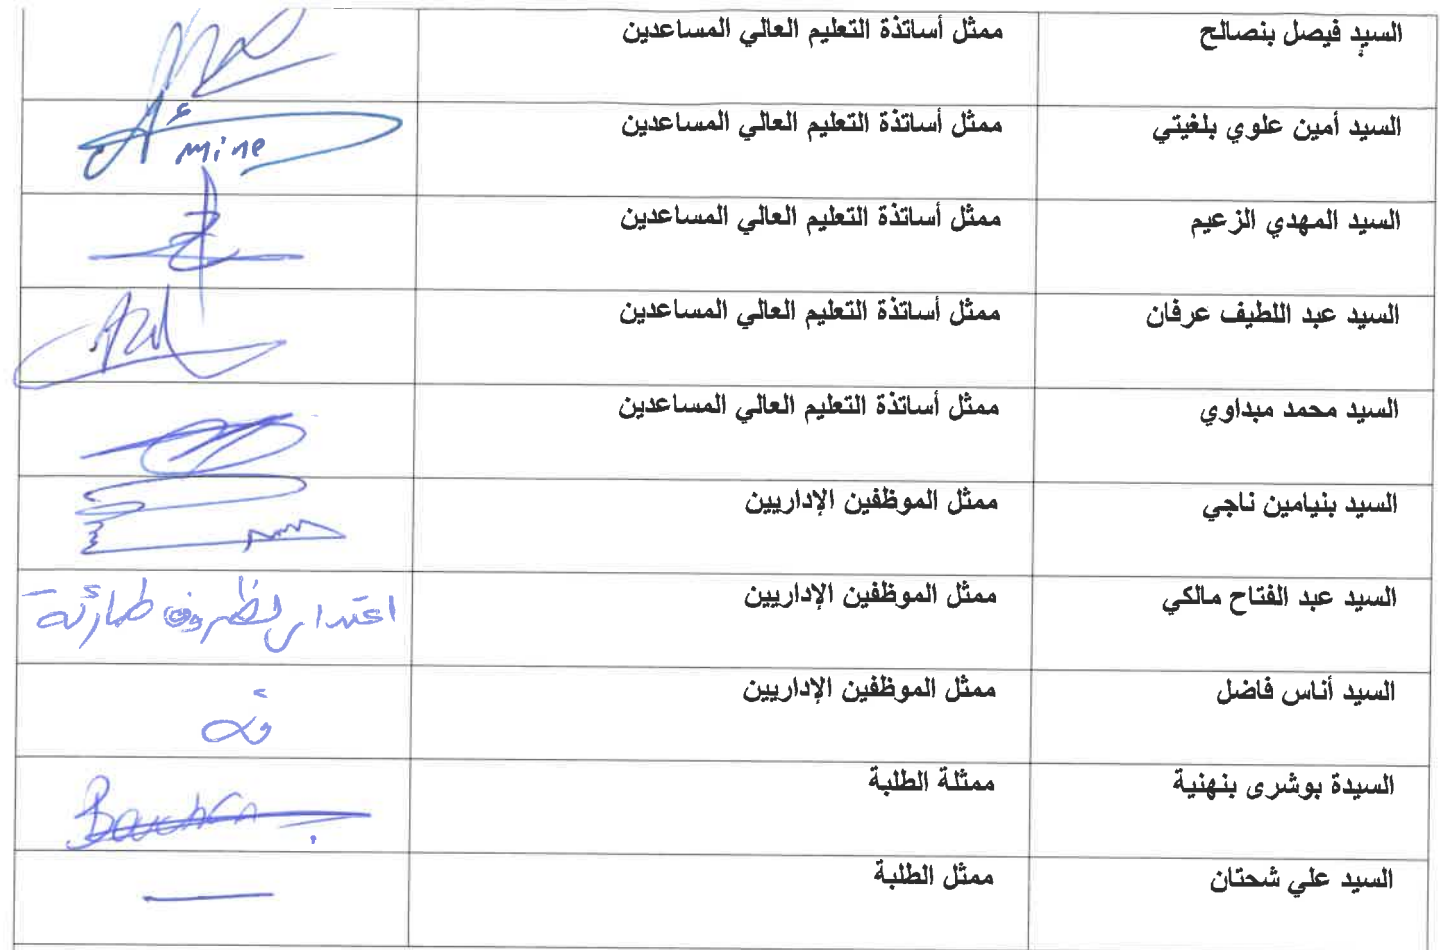 السيد فيصل بنصالح ممثل أساتذة التعليم العالي المساعدين
السيد أمين علوي بلغيتي ممثل أساتذة التعليم العالي المساعدين Amine
السيد المهدي الزعيم ممثل أساتذة التعليم العالي المساعدين
السيد عبد اللطيف عرفان ممثل أساتذة التعليم العالي المساعدين
السيد محمد مبداوي ممثل أساتذة التعليم العالي المساعدين
السيد بنيامين ناجي ممثل الموظفين الإداريين
السيد عبد الفتاح مالكي ممثل الموظفين الإداريين اعتدار لظروف طارئة
السيد أناس فاضل ممثل الموظفين الإداريين
السيدة بوشرى بنهنية ممثلة الطلبة
السيد علي شحتان ممثل الطلبة